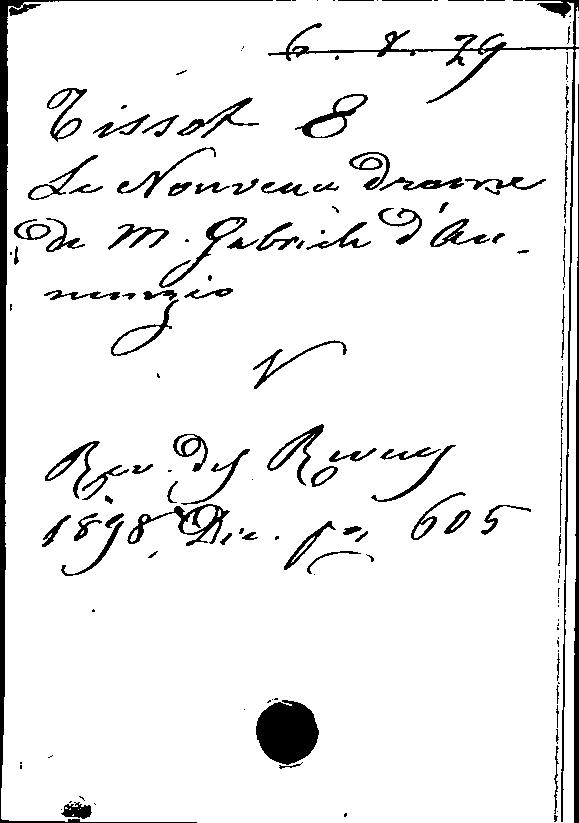 6. 8. 29
Tissot E
Le Nouveau drame
de M. Gabriele d'An-
nunzio
V
Rev. des Revues
1898, Dec. pa 605